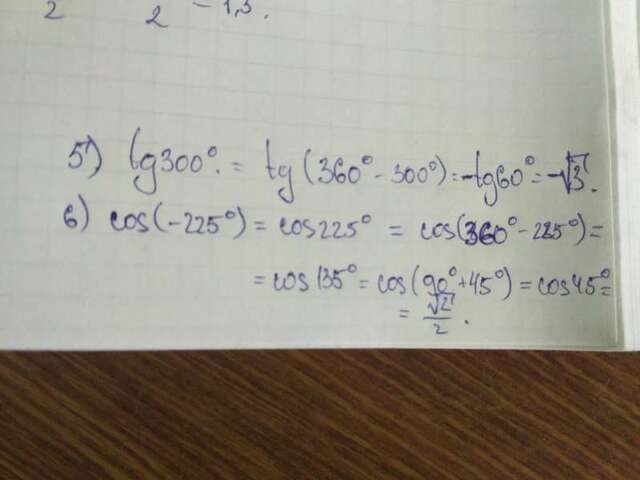 2 2 - 1,3.
5) tg300° = tg(360° - 300°) = -tg60° = -√3.
6) cos(-225°) = cos225° = cos(360° - 225°) =
= cos135° = cos(90° + 45°) = cos45° =
= √2/2.